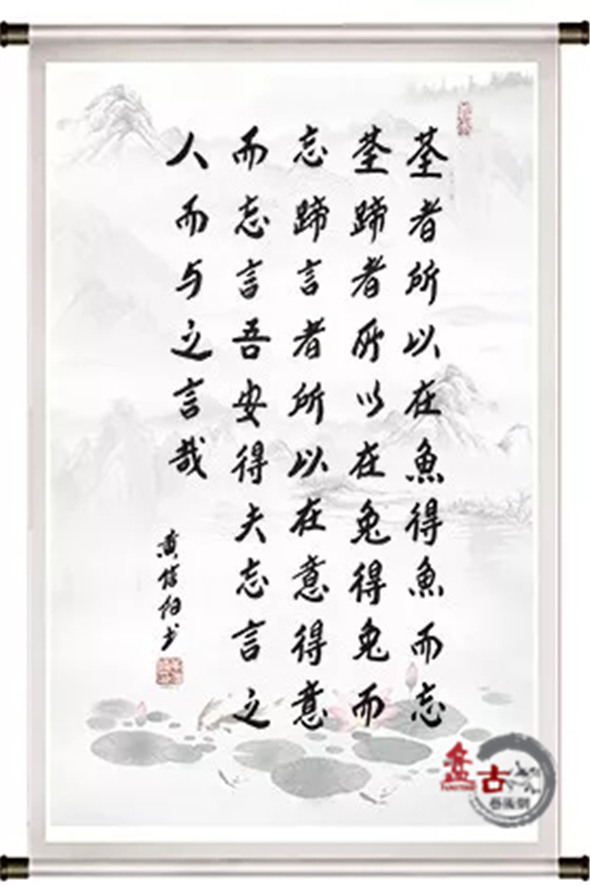 荃者所以在魚得魚而忘
荃蹄者所以在兔得兔而
忘蹄言者所以在意得意
而忘言吾安得夫忘言之
人而与之言哉
盘古
藝術網